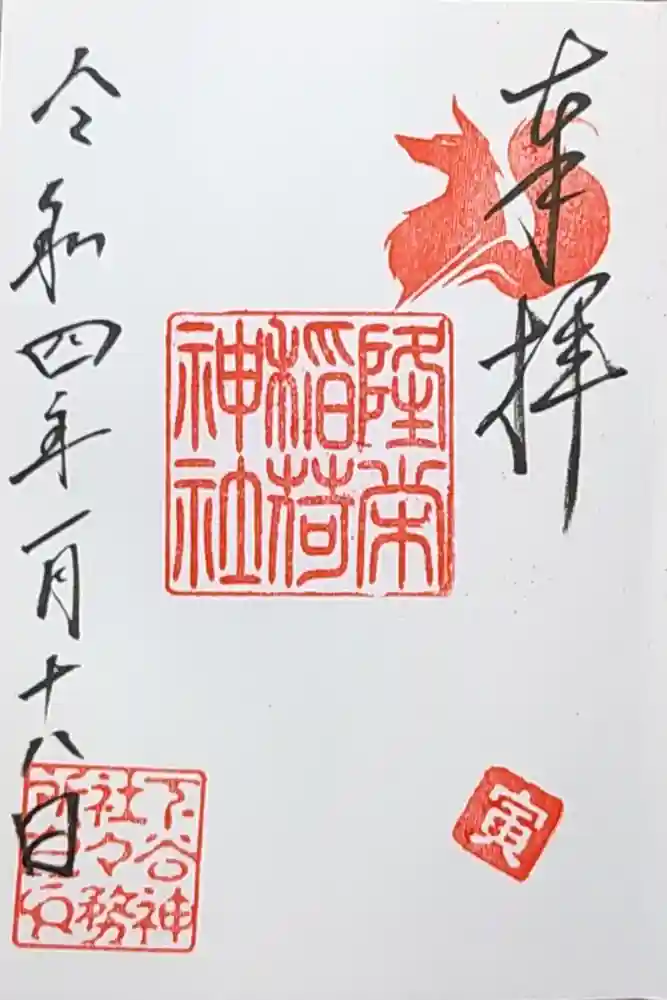 奉拝
隆栄
稲荷
神社
令和四年一月十八日
下谷神
社々務
寅